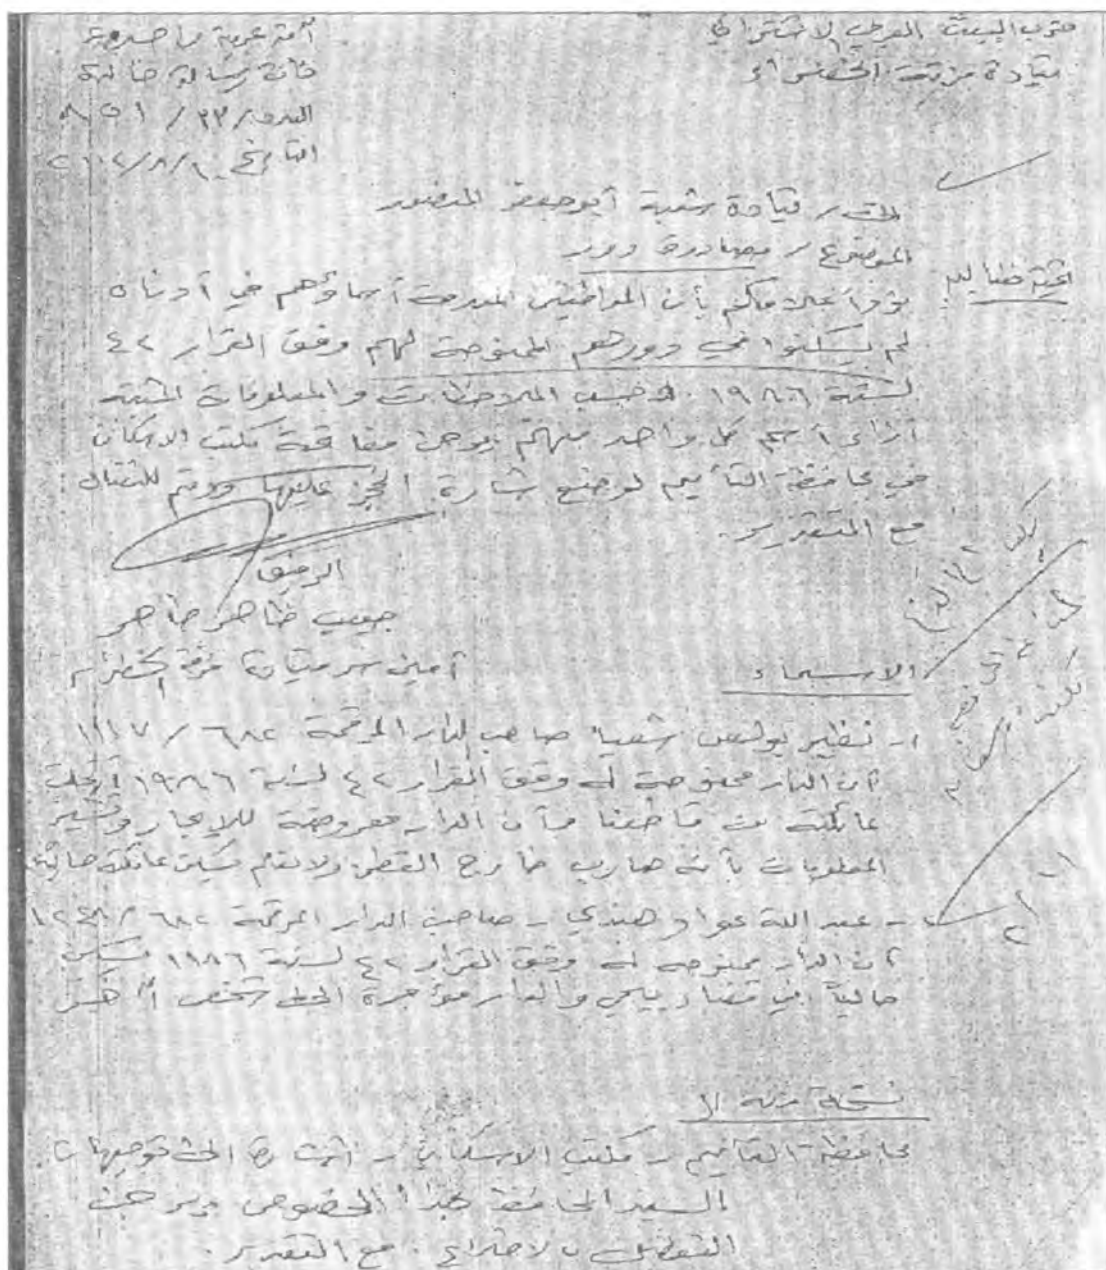 حزب البعث العربي الاشتراكي
قيادة فرقة الخضراء
أمة عربية واحدة
ذات رسالة خالدة
العدد / ٢٣ / ٨٥١
التاريخ
الى / قيادة شعبة أبو جعفر المنصور
الموضوع / مصادرة دور
تحية نضالية
نود أعلامكم بأن المواطنين المدرجة أسماؤهم في أدناه
لم يسكنوا في دورهم الممنوحة لهم وفق القرار ٤٢
لسنة ١٩٨٦ وحسب الملاحظات والمعلومات المثبتة
أزاء أسم كل واحد منهم يرجى مفاتحة مكتب الاسكان
في محافظة التأميم لوضع شارة الحجز عليها ودمتم للنضال
مع التقدير.
الرفيق
أمين سر قيادة فرقة الخضراء
الاسماء
١- نظير بولص شعيا صاحب الدار المرقمة ٦٨٢ /
أن الدار ممنوحة له وفق القرار ٤٢ لسنة ١٩٨٦
عائلته من قاطعنا وأن الدار معروضة للايجار وتشير
المعلومات بأنه هارب خارج القطر ولا نعلم سكن عائلته حالياً
٢- عبد الله عواد هندي - صاحب الدار المرقمة ٦٨٢ /
أن الدار ممنوحه له وفق القرار ٤٢ لسنة ١٩٨٦ يسكن
حالياً في قضاء والدار مؤجرة الى شخص آخر
نسخة منه الى
محافظة التأميم - مكتب الاسكان - اشارة الى توجيهات
السيد المحافظ بهذا الخصوص يرجى
التفضل بالاطلاع . مع التقدير .